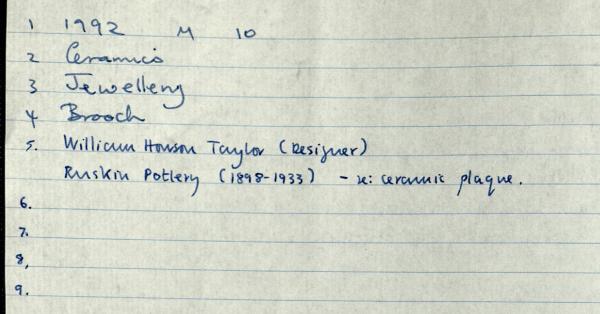 1 1992 M 10
2 Ceramics
3 Jewellery
4 Brooch
5. William Howson Taylor (Designer)
Ruskin Pottery (1898-1933) - re: ceramic plaque.
6.
7.
8,
9.